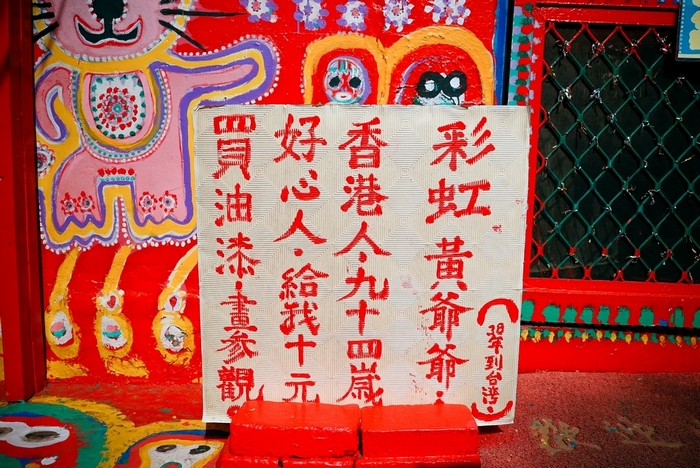 彩虹黃爺爺.
(38年到台灣.)
香港人.九十四歲
好心人.給我十元
買油漆.畫參觀